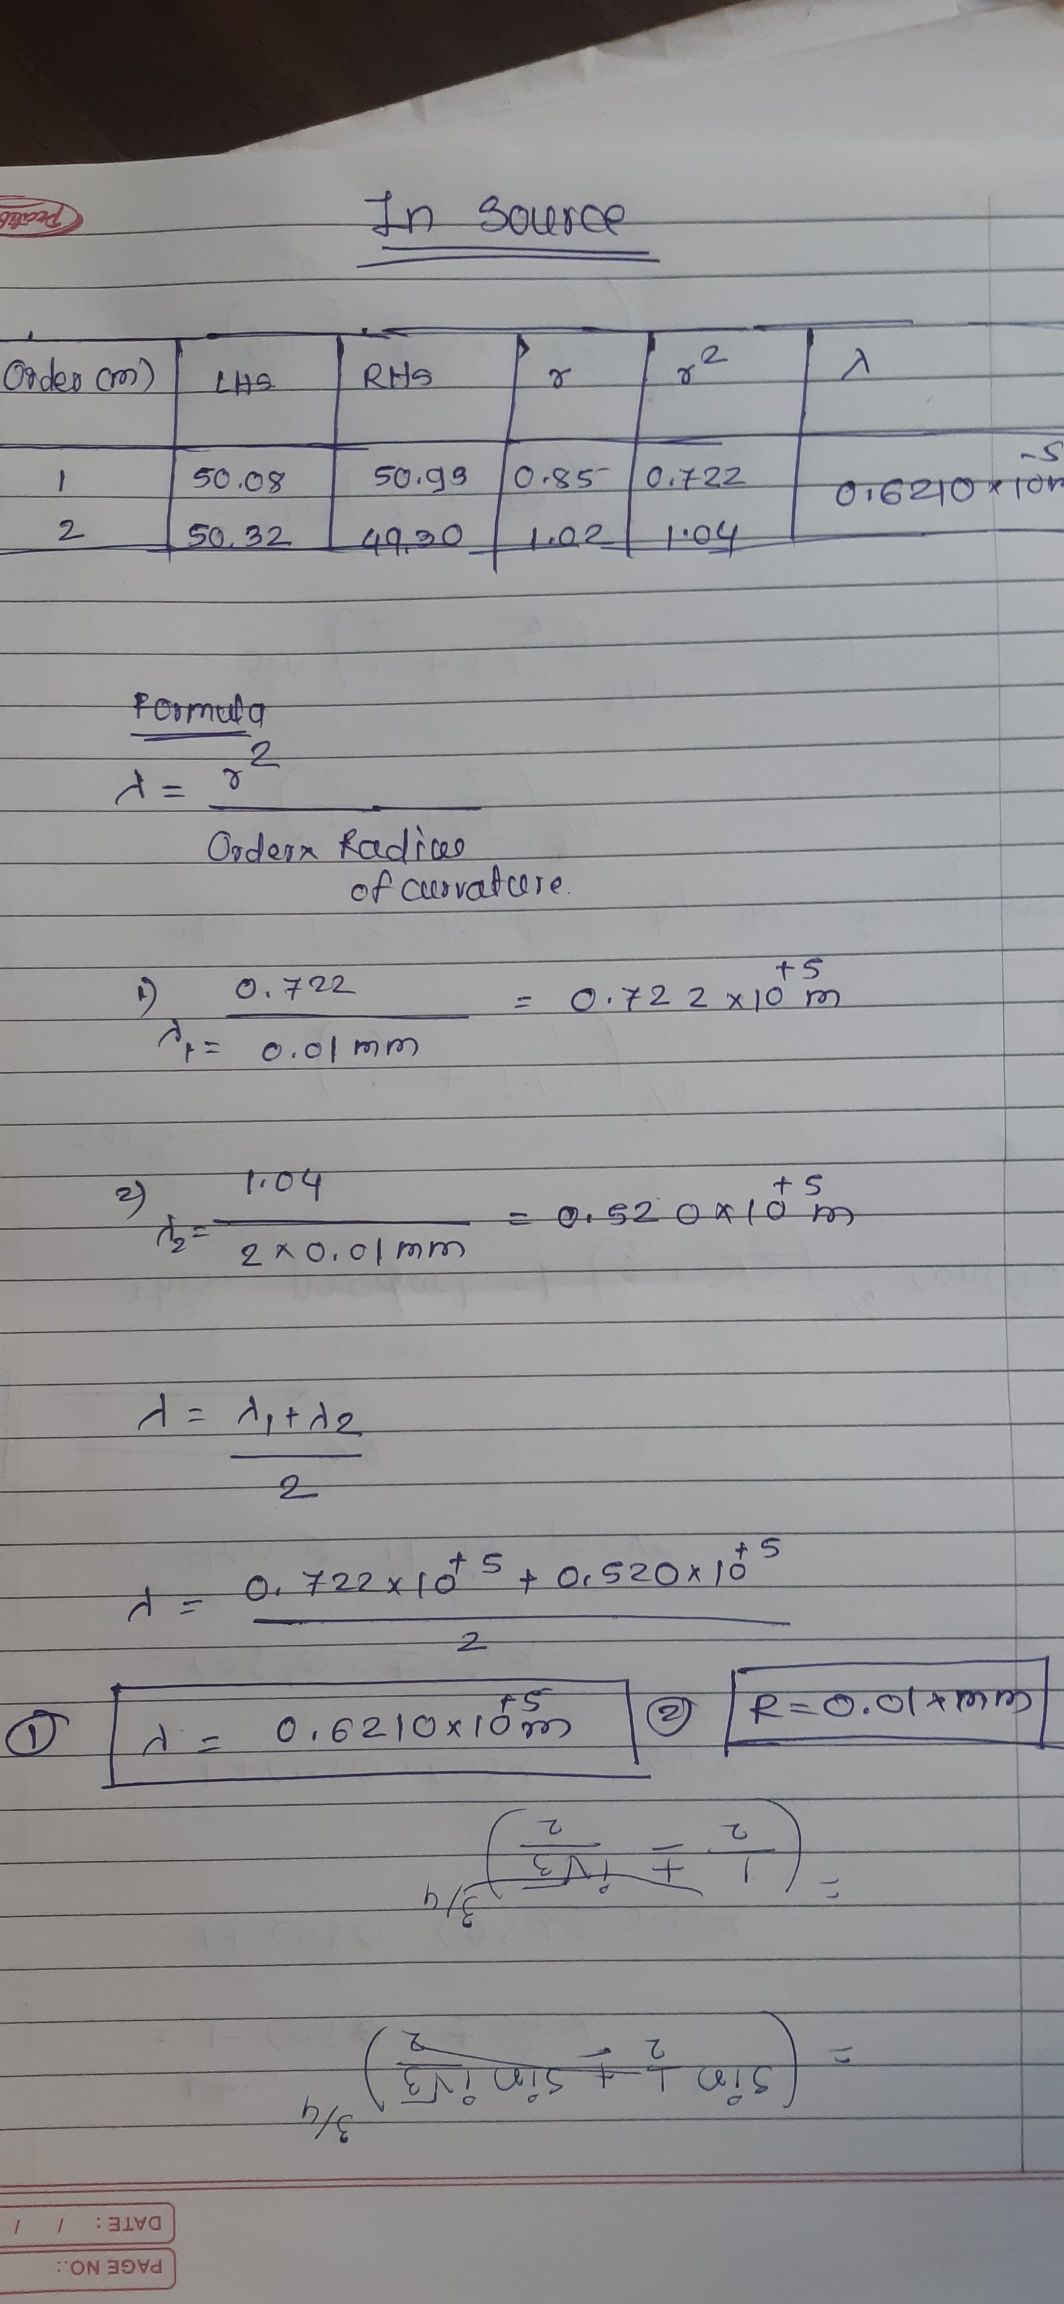 In Source
Order (m) LHS RHS r r² λ
1 50.08 50.99 0.85 0.722 0.6210 × 10⁻⁵m
2 50.32 49.30 1.02 1.04
Formula
λ = r²
Order x Radius
of curvature.
1) λ₁ = 0.722 / 0.01 mm = 0.722 × 10⁺⁵ m
2) λ₂ = 1.04 / 2 × 0.01 mm = 0.520 × 10⁺⁵ m
λ = λ₁ + λ₂
2
λ = 0.722 × 10⁺⁵ + 0.520 × 10⁺⁵
2
① λ = 0.6210 × 10⁺⁵ ② R = 0.01 × mm
= (1/2 + i√3/2)^3/4
= (sin 1/2 + sin i√3/2)^3/4
DATE: / /
PAGE NO.: